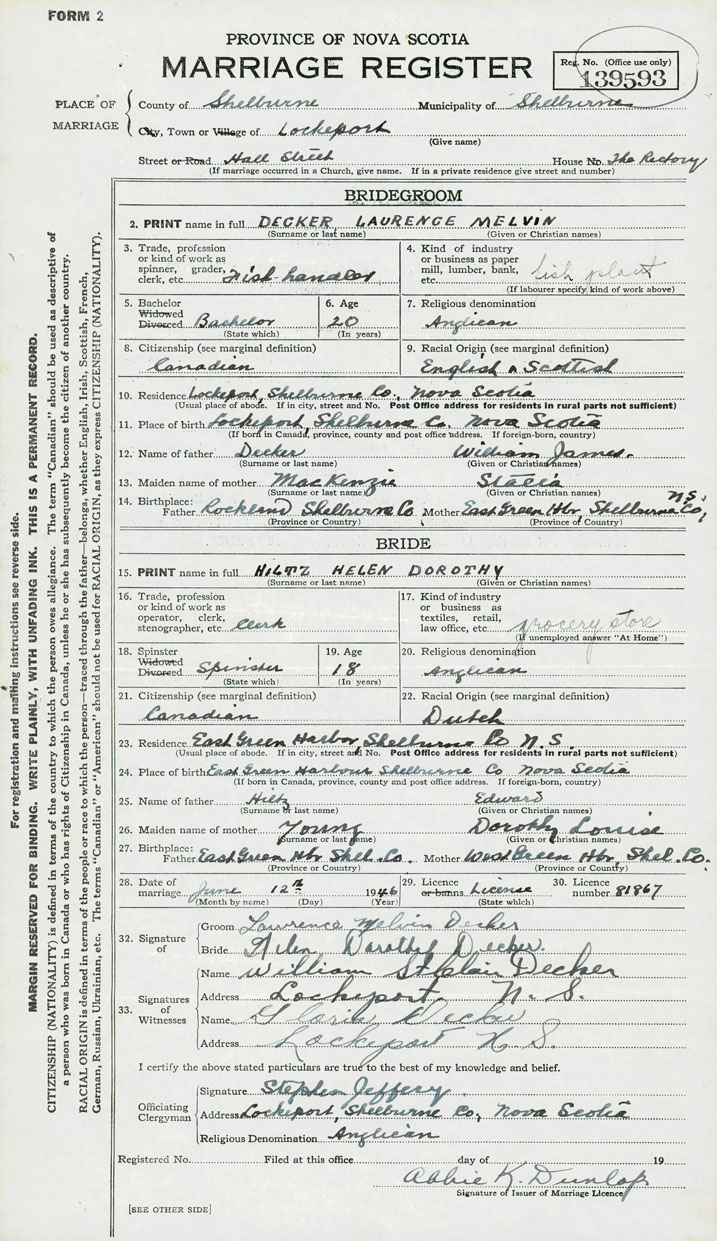 FORM 2
PROVINCE OF NOVA SCOTIA
MARRIAGE REGISTER
Reg. No. (Office use only)
139593
PLACE OF MARRIAGE
County of Shelburne Municipality of Shelburne
City, Town or Village of Lockeport
(Give name)
Street or Road Hall Street House No. The Rectory
(If marriage occurred in a Church, give name. If in a private residence give street and number)
BRIDEGROOM
2. PRINT name in full DECKER LAURENCE MELVIN
(Surname or last name) (Given or Christian names)
3. Trade, profession or kind of work as spinner, grader, clerk, etc. Fish-handler
4. Kind of industry or business as paper mill, lumber, bank, etc. fish plant
(If labourer specify kind of work above)
5. Bachelor Widowed Divorced Bachelor
(State which)
6. Age 20
(In years)
7. Religious denomination
Anglican
8. Citizenship (see marginal definition)
Canadian
9. Racial Origin (see marginal definition)
English & Scottish
10. Residence Lockeport, Shelburne Co., Nova Scotia
(Usual place of abode. If in city, street and No. Post Office address for residents in rural parts not sufficient)
11. Place of birth Lockeport, Shelburne Co. Nova Scotia
(If born in Canada, province, county and post office address. If foreign-born, country)
12. Name of father Decker William James.
(Surname or last name) (Given or Christian names)
13. Maiden name of mother MacKenzie Stacia
(Surname or last name) (Given or Christian names)
14. Birthplace: Father Rockland Shelburne Co Mother East Green Hbr, Shelburne Co, N.S.
(Province or Country) (Province of Country)
BRIDE
15. PRINT name in full HILTZ HELEN DOROTHY
(Surname or last name) (Given or Christian names)
16. Trade, profession or kind of work as operator, clerk, stenographer, etc. Clerk
17. Kind of industry or business as textiles, retail, law office, etc. grocery store
(If unemployed answer "At Home")
18. Spinster Widowed Divorced Spinster
(State which)
19. Age 18
(In years)
20. Religious denomination
Anglican
21. Citizenship (see marginal definition)
Canadian
22. Racial Origin (see marginal definition)
Dutch
23. Residence East Green Harbor, Shelburne Co N.S.
(Usual place of abode. If in city, street and No. Post Office address for residents in rural parts not sufficient)
24. Place of birth East Green Harbour Shelburne Co Nova Scotia
(If born in Canada, province, county and post office address. If foreign-born, country)
25. Name of father Hiltz Edward
(Surname or last name) (Given or Christian names)
26. Maiden name of mother Young Dorothy Louise
(Surname or last name) (Given or Christian names)
27. Birthplace: Father East Green Hbr Shel. Co. Mother West Green Hbr, Shel. Co.
(Province or Country) (Province or Country)
28. Date of marriage June 12th 1946
(Month by name) (Day) (Year)
29. Licence or banns License
(State which)
30. Licence number 81867
32. Signature of
Groom Lawrence Melvin Decker
Bride Helen Dorothy Decker.
33. Signatures of Witnesses
Name William St Clair Decker
Address Lockeport N. S.
Name Gloria Decker
Address Lockeport N. S.
I certify the above stated particulars are true to the best of my knowledge and belief.
Officiating Clergyman
Signature Stephen Jeffery.
Address Lockeport, Shelburne Co, Nova Scotia
Religious Denomination Anglican
Registered No. Filed at this office day of 19
Abbie K. Dunlop
Signature of Issuer of Marriage Licence
[SEE OTHER SIDE]
For registration and mailing instructions see reverse side.
MARGIN RESERVED FOR BINDING. WRITE PLAINLY, WITH UNFADING INK. THIS IS A PERMANENT RECORD.
CITIZENSHIP (NATIONALITY) is defined in terms of the country to which the person owes allegiance. The term "Canadian" should be used as descriptive of
a person who was born in Canada or who has rights of Citizenship in Canada, unless he or she has subsequently become the citizen of another country.
RACIAL ORIGIN is defined in terms of the people or race to which the person—traced through the father—belongs, whether English, Irish, Scottish, French,
German, Russian, Ukrainian, etc. The terms "Canadian" or "American" should not be used for RACIAL ORIGIN, as they express CITIZENSHIP (NATIONALITY).